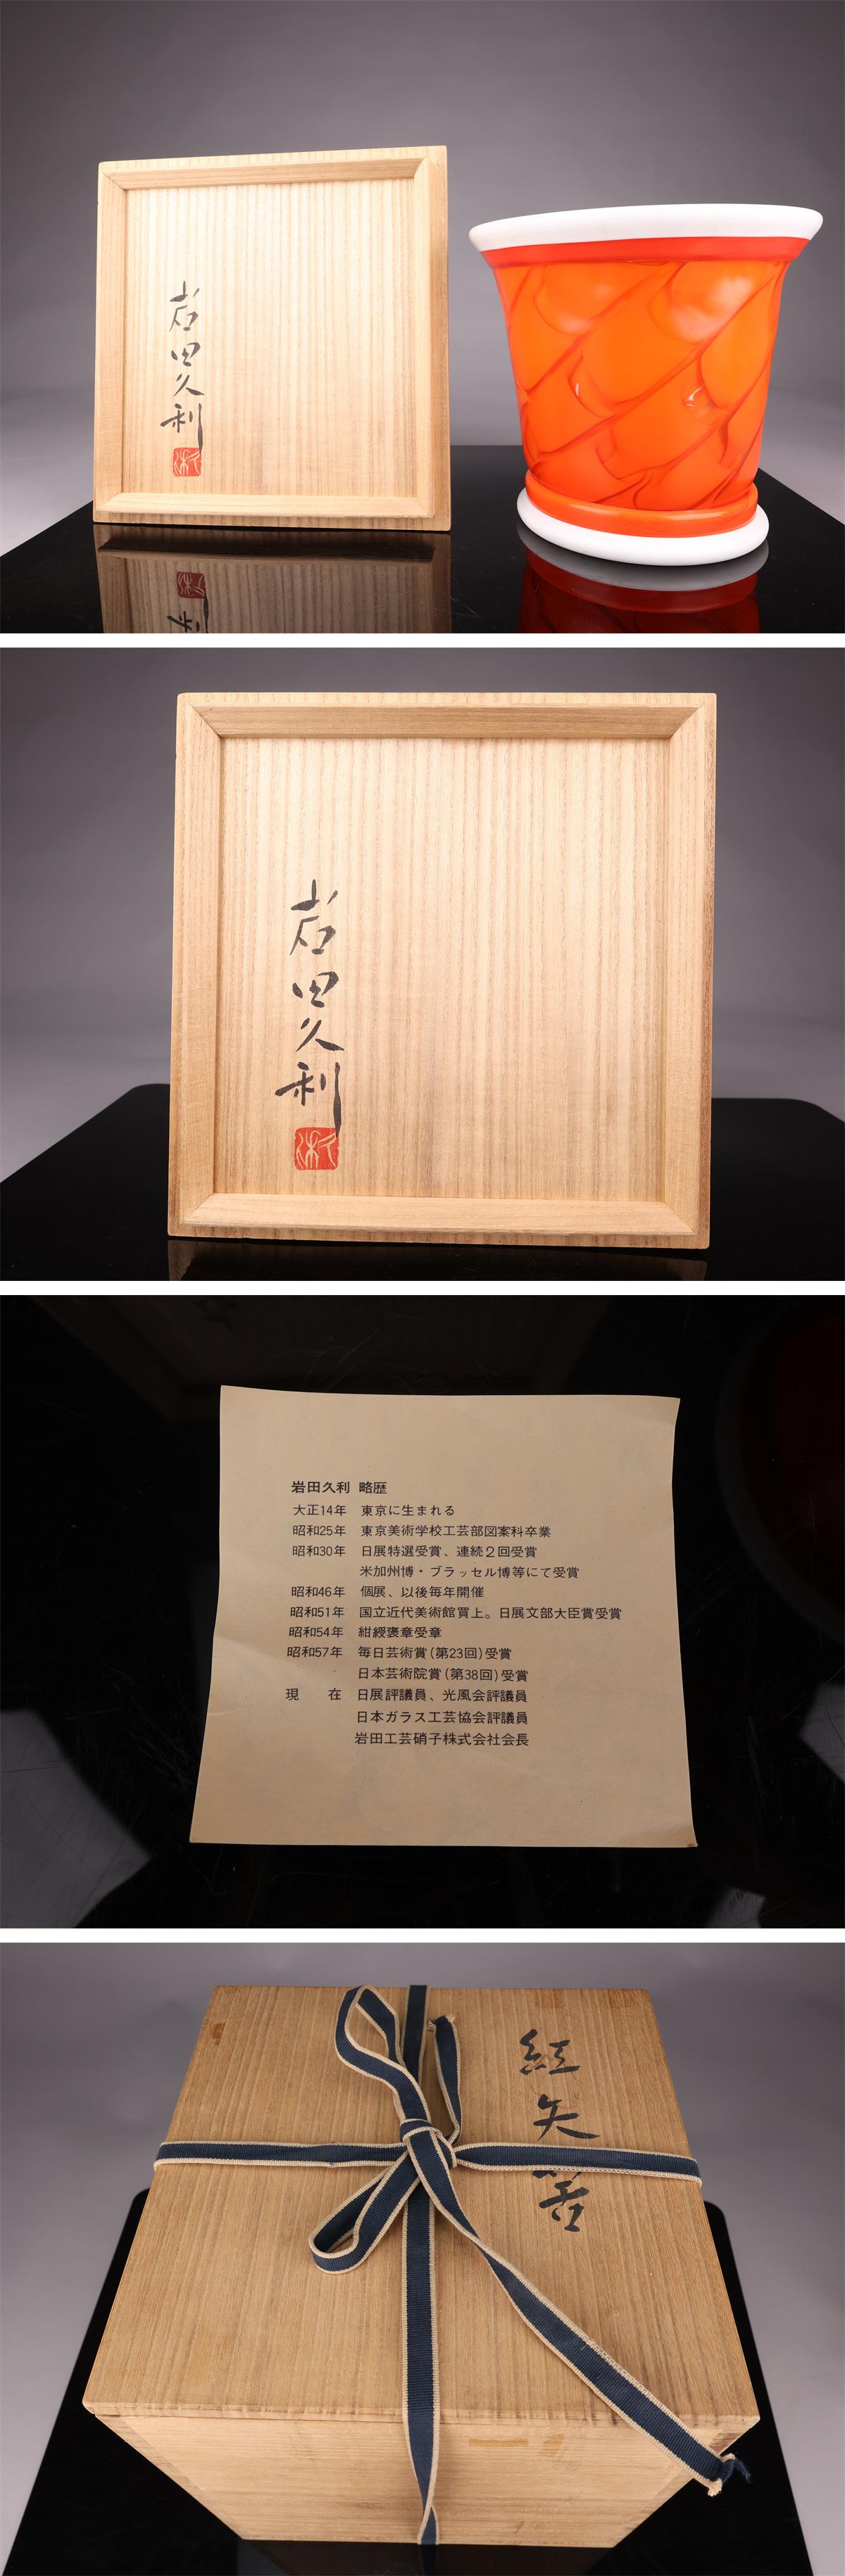 岩田久利
岩田久利
岩田久利 略歴
大正14年 東京に生まれる
昭和25年 東京美術学校工芸部図案科卒業
昭和30年 日展特選受賞、連続2回受賞
米加州博・ブラッセル博等にて受賞
昭和46年 個展、以後毎年開催
昭和51年 国立近代美術館買上。日展文部大臣賞受賞
昭和54年 紺綬褒章受章
昭和57年 毎日芸術賞(第23回)受賞
日本芸術院賞(第38回)受賞
現 在 日展評議員、光風会評議員
日本ガラス工芸協会評議員
岩田工芸硝子株式会社会長
紅矢